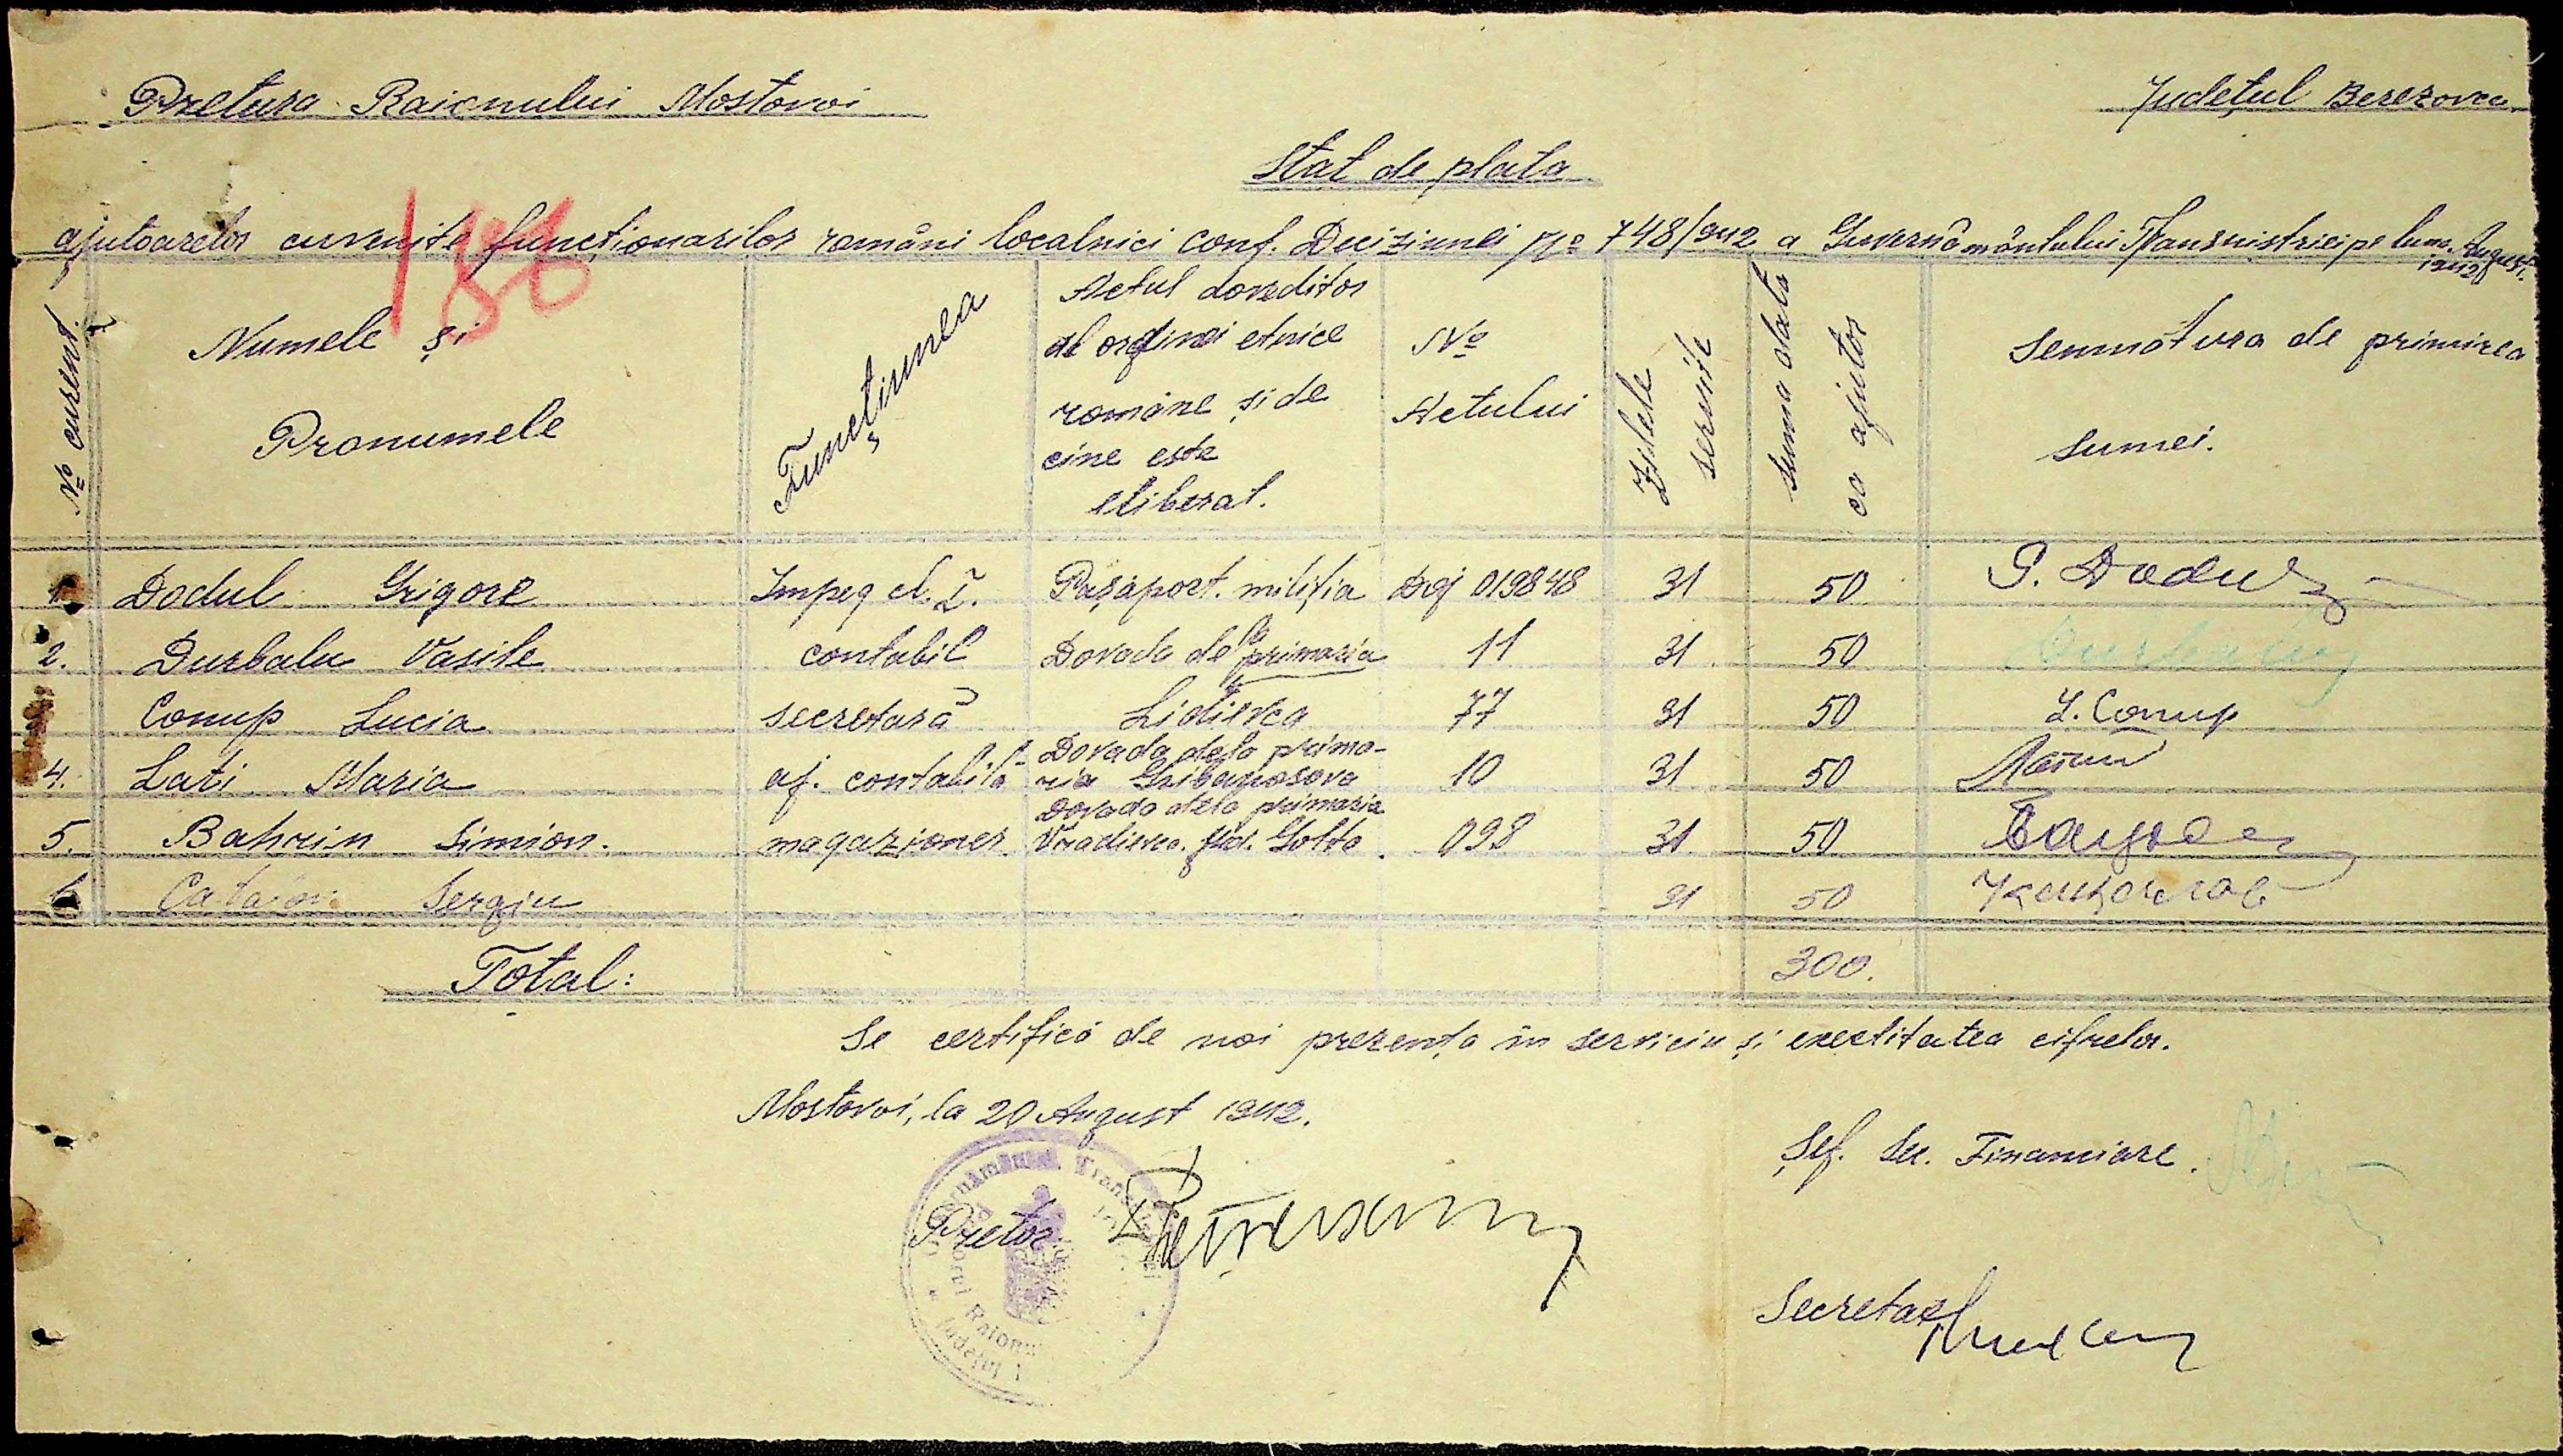 Pretura Raionului Mostovoi
Județul Berezovca
Stat de plata
ajutoarelor cuvenite funcționarilor români localnici conf. Deciziunei No 748/942 a Guvernământului Transnistriei pe luna August 1942
188
No curent.
Numele și
Pronumele
Funcțiunea
Actul doveditor
al orginei etnice
române și de
cine este
eliberat.
No
Actului
Zilele
servite
suma data
ca ajutor
Semnătura de primirea
sumei.
1. Dodul Grigore Impeg cl. I. Pașaport. miliția 019848 31 50 G. Dodul
2. Durbalu Vasile contabil Dovada de la primaria 11 31 50
Conup Lucia secretară Lidievca 77 31 50 L. Conup
4. Lati Maria aj. contabilă Dovada dela prima-
ria 10 31 50 Лати
5. Bahrin Simion. magazioner Dovada dela primaria
Vradievca. Jud. Golta. 098 31 50
6 Sergiu 31 50
Total: 300.
Se certifică de noi prezența în serviciu și exectitatea cifrelor.
Mostovoi, la 20 August 1942.
Pretor
Șef. Sec. Financiare.
Secretar